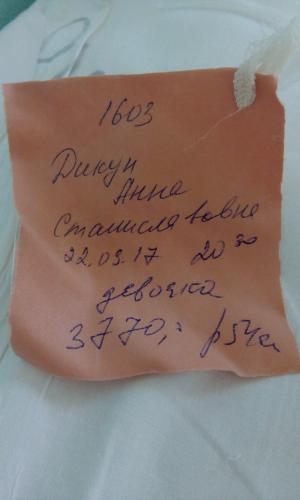 1603
Дикун
Анна
Станиславовна
22.09.17 20 30
девочка
3770,: р 54см